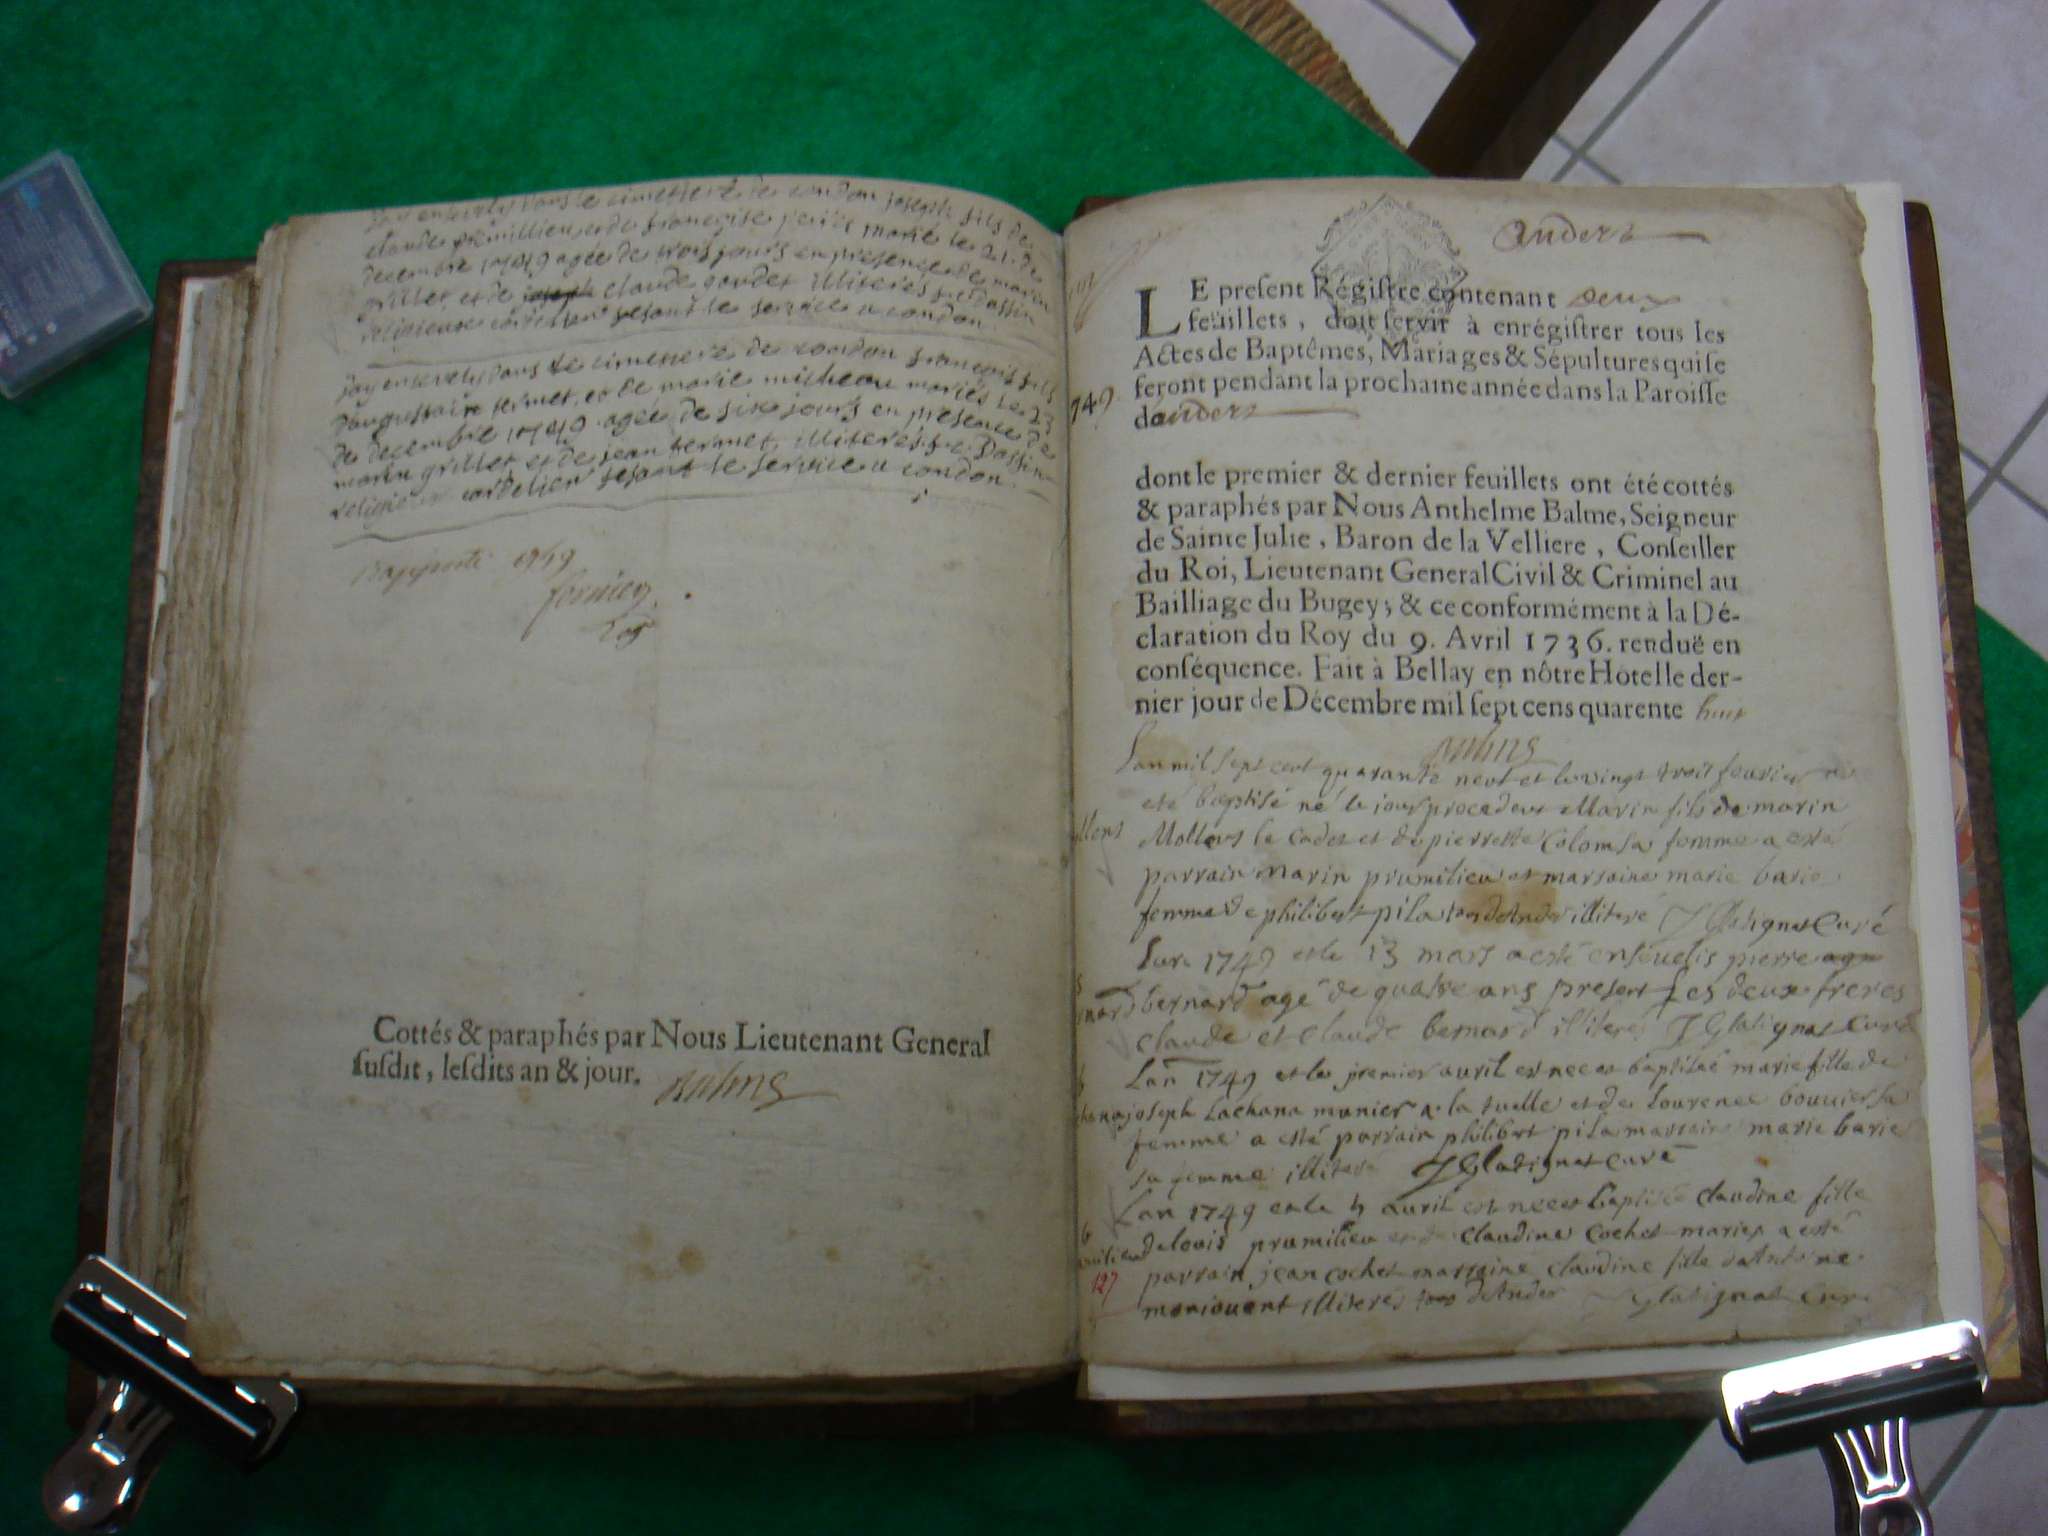 jay ensevely dans le cimetiere de condon joseph fils de
claude prumillieu et de françoise marié le 21 de
decembre 1749 agée de trois jours en presence de marin
grillet et de joseph claude goudet illiteres f. c. Dassin
religieux cordelier fesant le service a condon.
jay ensevely dans le cimetiere de condon françois fils
d'augustain termet, et de marie micheau mariés le 23
de decembre 1749 agée de six jours en presence de
marin grillet et de jean termet, illiterés f. c. Dassin
religieux cordelier fesant le service a condon.
Rapporté 1749
Cottés & paraphés par Nous Lieutenant General
susdit, lesdits an & jour.
Andert
LE present Régistre contenant deux
feüillets, doit servir à enrégistrer tous les
Actes de Baptêmes, Mariages & Sépultures qui se
feront pendant la prochaine année dans la Paroisse
dandert
749
dont le premier & dernier feuillets ont été cottés
& paraphés par Nous Anthelme Balme, Seigneur
de Sainte Julie, Baron de la Velliere, Conseiller
du Roi, Lieutenant General Civil & Criminel au
Bailliage du Bugey; & ce conformément à la Dé-
claration du Roy du 9. Avril 1736. renduë en
conséquence. Fait à Bellay en nôtre Hotel le der-
nier jour de Décembre mil sept cens quarente huit
Lan mil sept cent quarante neuf et le vingt troit feurier a
eté baptisé né le jour precedent Marin fils de marin
Mollens le cadet et de pierrette Colom sa femme a esté
parrain marin prumilieu et marraine marie barie
femme de philibert pila tous dAnder illiteré J Glatignat Curé
Lan 1749 et le 13 mars a esté enseuelis pierre
bernard agé de quatre ans present les deux freres
claude et claude bernard illiteré J Glatignat Curé
Lan 1749 et le premier auril est nee et baptisée marie fille de
joseph Lachana munier a la tuelle et de Lourence bouuier sa
femme a esté parrain philibert pila marraine marie barie
sa femme illiteré J Glatignat curé
Lan 1749 et le 4 auril est nee et baptisée claudine fille
de louis prumilieu et de claudine cochet mariez a esté
parrain jean cochet marraine claudine fille dAntoine
moniouent illiterés tous dAnder J Glatignat Curé
127